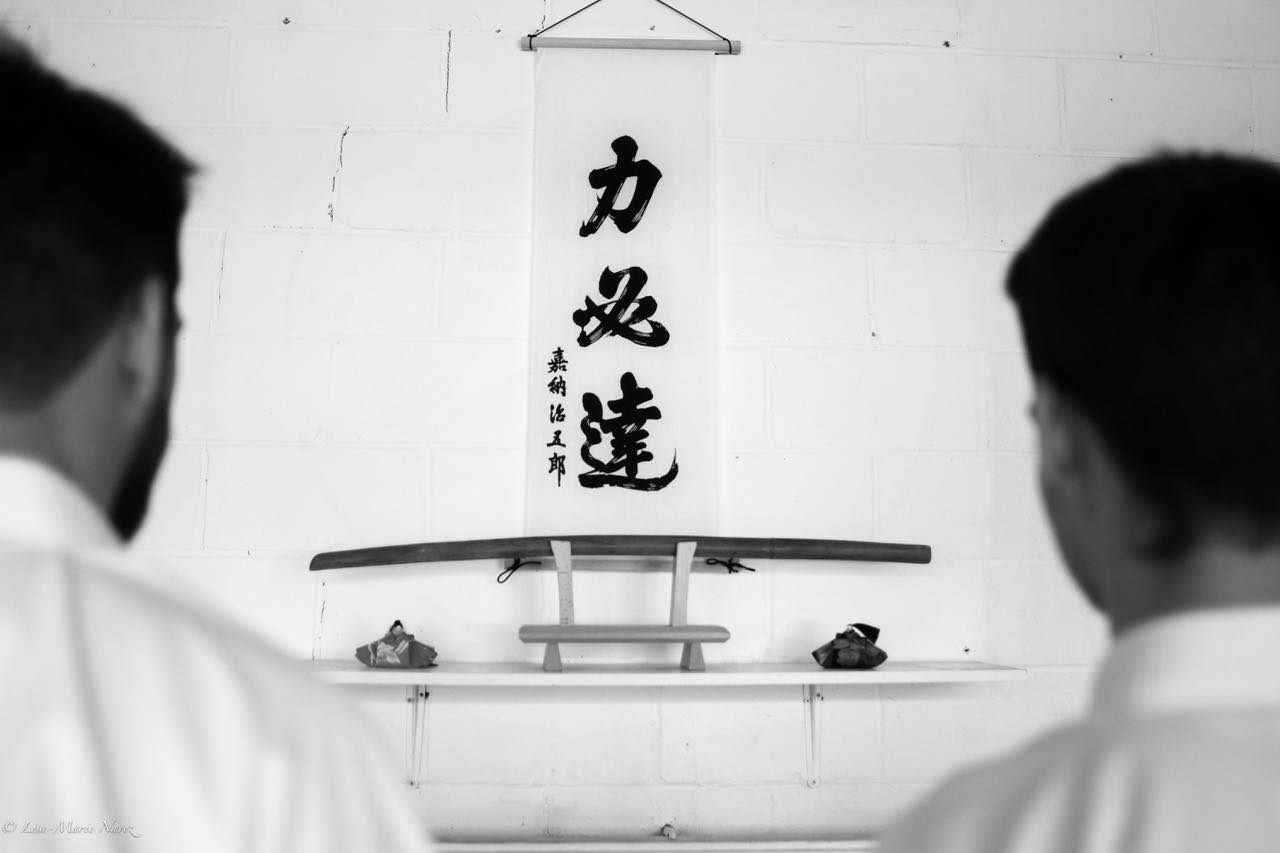 力必達
嘉納治五郎
© Lisa-Marie Nuñez